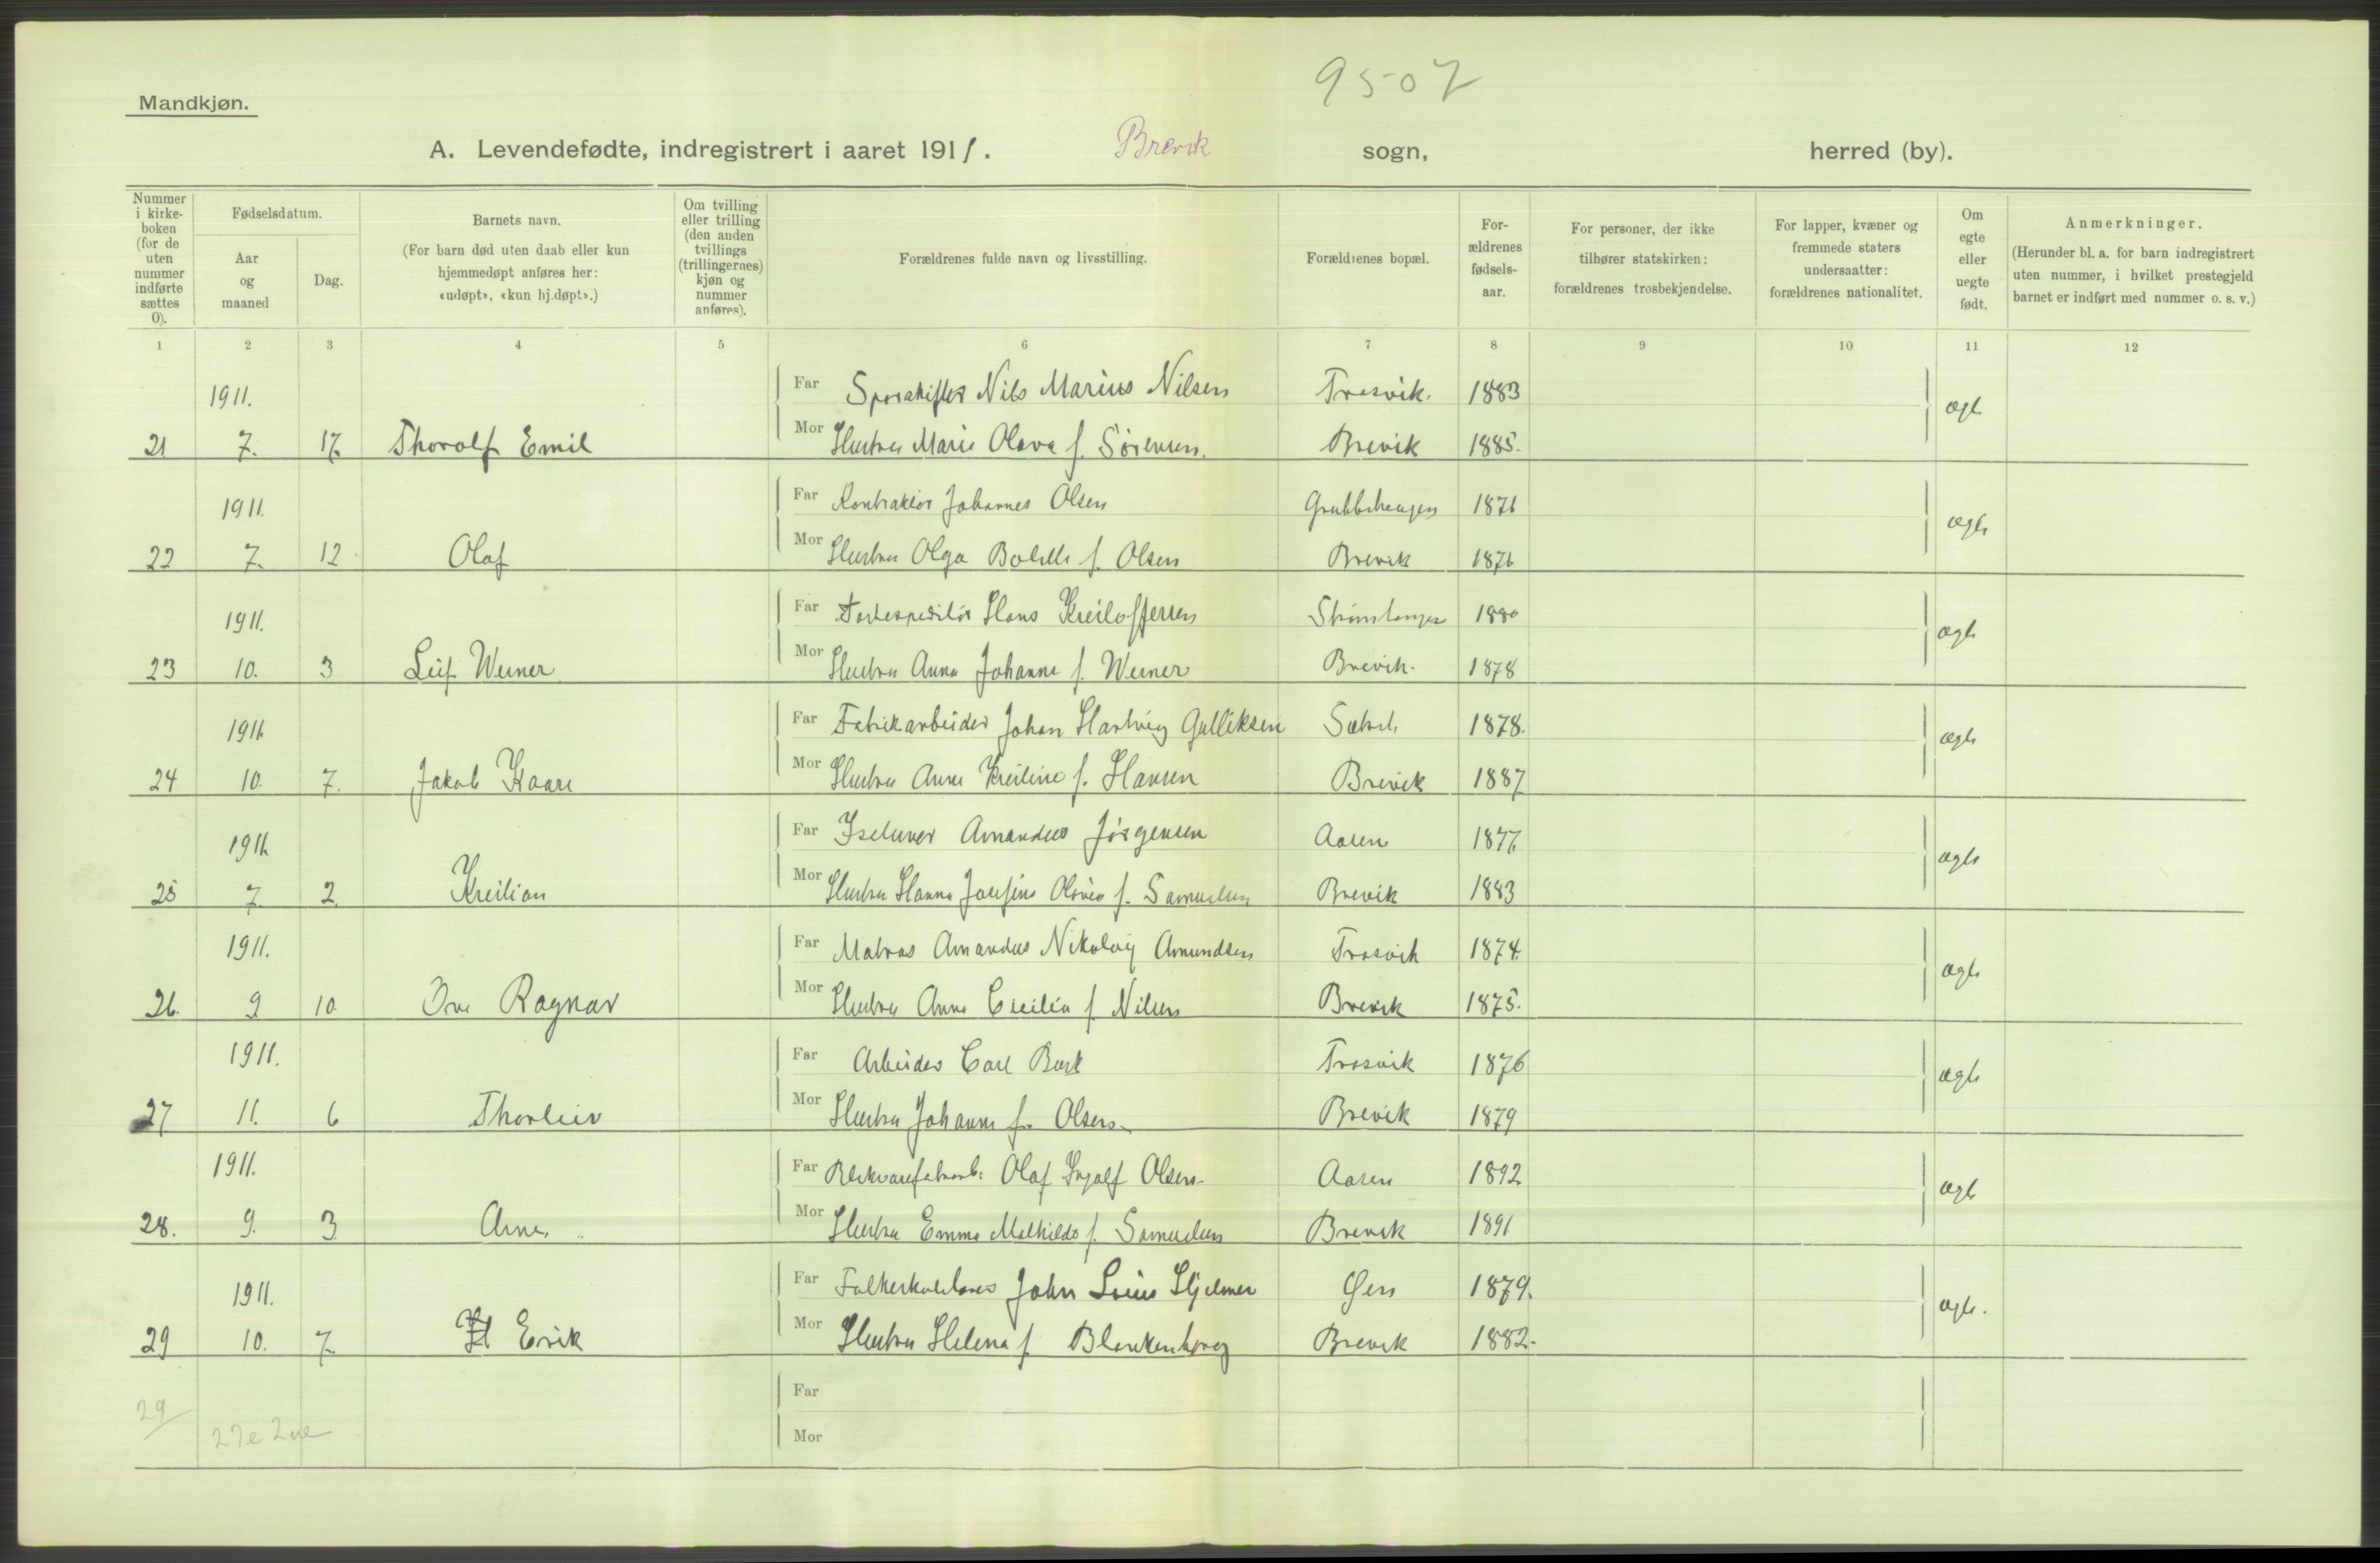 9507
Mandkjøn.
A. Levendefødte, indregistrert i aaret 1911. Brevik sogn, herred (by).
Nummer i kirkeboken (for de uten nummer indførte sættes 0).
Fødselsdatum.
Aar og maaned
Dag.
Barnets navn.
(For barn død uten daab eller kun hjemmedøpt anføres her: «udøpt», «kun hj.døpt».)
Om tvilling eller trilling (den anden tvillings (trillingernes) kjøn og nummer anføres).
Forældrenes fulde navn og livsstilling.
Forældrenes bopæl.
Forældrenes fødselsaar.
For personer, der ikke tilhører statskirken: forældrenes trosbekjendelse.
For lapper, kvæner og fremmede staters undersaatter: forældrenes nationalitet.
Om egte eller uegte født.
Anmerkninger.
(Herunder bl. a. for barn indregistrert uten nummer, i hvilket prestegjeld barnet er indført med nummer o. s. v.)
1 2 3 4 5 6 7 8 9 10 11 12
1911. Far Sporskifter Nils Marius Nilsen Trosvik. 1883
21 7. 17 Thorolf Emil Mor Hustru Marie Olava f. Sørensen. Brevik 1885. ægte
1911. Far Kontraktør Johannes Olsen 1876
22 7. 12. Olaf Mor Hustru Olga Bolette f. Olsen Brevik 1876 ægte
1911. Far Hans Kristoffersen 1880
23 10. 3 Leif Werner Mor Hustru Anna Johanne f. Werner Brevik. 1878 ægte
1911. Far Fabrikarbeider Johan Hartvig Gulliksen 1878.
24 10. 7. Jakob Kaare Mor Hustru Anna Kristine f. Hansen Brevik 1887 ægte
1911. Far Amandus Jørgensen Aasen 1877
25 7. 2. Kristian Mor Hustru Hanna Josefine f. Samuelsen Brevik 1883 ægte
1911. Far Matros Amandus Nikolai Amundsen Trosvik 1874.
26. 9 10 Ove Ragnar Mor Hustru Anna Cecilia f. Nilsen Brevik 1875. ægte
1911. Far Arbeider Carl Trosvik 1876
27 11. 6 Thorleiv Mor Hustru Johanne f. Olsen. Brevik 1879 ægte
1911. Far Olaf Ingolf Olsen. Aasen 1892
28. 9. 3. Arne. Mor Hustru Emma Mathilde f. Samuelsen Brevik 1891 ægte
1911. Far John Hjelmer Øen 1879.
29 10. 7. Erik Mor Hustru Helena f. Blankenborg Brevik 1882. ægte.
29 Far
27e 2ue Mor